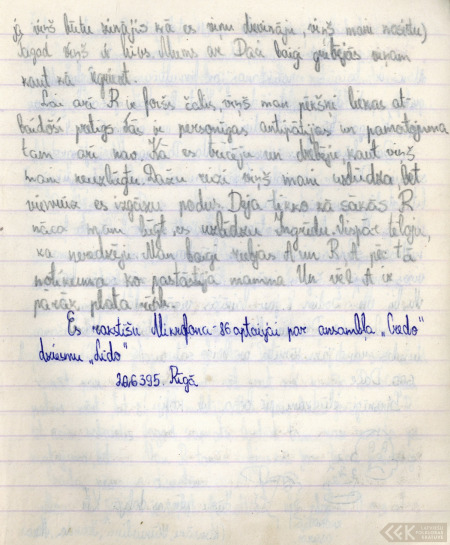 ja viņš būtu zinājis kā es viņu dievināju, viņš mani nosistu)
Tagad viņš ir Mums ar Daci baigi gribējās viņam
kaut kā iegriezt.
Lai arī R ir foršs čalis, viņš man pēkšņi liekas at-
baidošs pretīgs. Tās ir personīgas antipātijas un pamatojuma
tam arī nav. Kā es trīcēju un drebēju kaut viņš
mani neuzlūgtu. Dažu reizi viņš mani uzlūdza, bet
vienreiz es izgāzu podus. Deja tikko kā sākās R
nāca mani lūgt, es uzlūdzu Ingrīdu. Vispār tēloju,
ka neredzēju. Man baigi riebjās A un R, A pēc tā
notikuma, ko pastāstīja mamma Un vēl A ir
pārāk plata
Es rakstīšu Mikrofona-86 aptaujai par ansambļa „Credo"
dziesmu „Lido"
226395. Rīgā